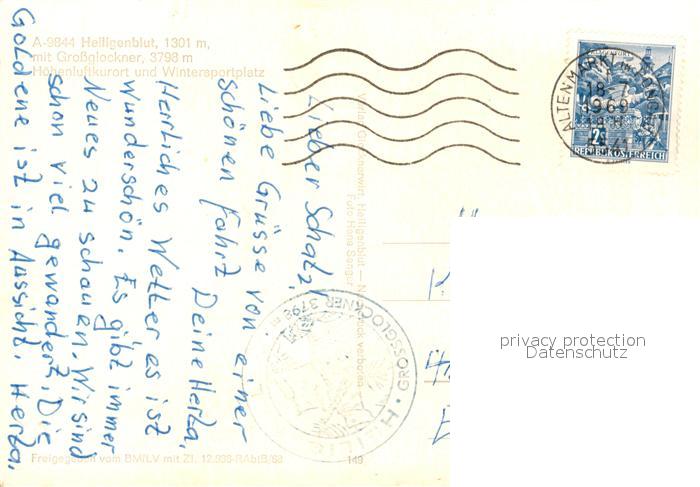 A-9844 Heiligenblut, 1301 m,
mit Großglockner, 3798 m
Höhenluftkurort und Wintersportplatz
Lieber Schatz!
Liebe Grüsse von einer
schönen Fahrt Deine Herta.
Herliches Wetter es ist
Wunderschön. Es gibt immer
Neues zu schauen. Wir sind
schon viel gewandert. Die
Goldene ist in Aussicht. Herta.
Freigegeben vom BMfLV mit Zl. 12.936-RAbtB/68
149
Foto Hans
GROSSGLOCKNER 3798 m
ALTENMARKT
1969
REPUBLIK ÖSTERREICH
privacy protection
Datenschutz